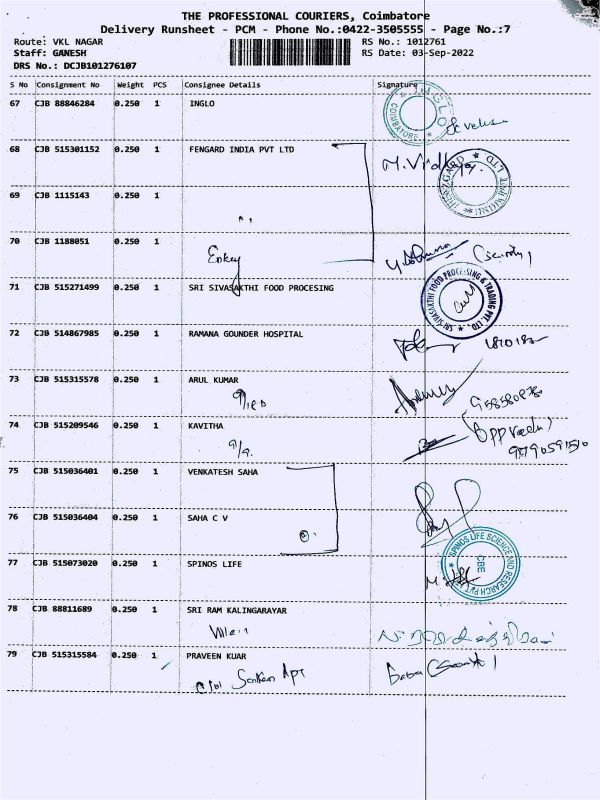 THE PROFESSIONAL COURIERS, Coimbatore
Delivery Runsheet - PCM - Phone No.:0422-3505555 - Page No.:7
Route: VKL NAGAR
RS No.: 1012761
Staff: GANESH
RS Date: 03-Sep-2022
DRS No.: DCJB101276107
S No Consignment No Weight PCS Consignee Details Signature
67 CJB 88846284 0.250 1 INGLO
COIMBATORE
68 CJB 515301152 0.250 1 FENGARD INDIA PVT LTD
M. Vidhya
69 CJB 1115143 0.250 1
70 CJB 1188051 0.250 1
71 CJB 515271499 0.250 1 SRI SIVASAKTHI FOOD PROCESING
SRI SIVASAKTHI FOOD PROCESSING & TRADING PVT. LTD.
72 CJB 514867985 0.250 1 RAMANA GOUNDER HOSPITAL
73 CJB 515315578 0.250 1 ARUL KUMAR
74 CJB 515209546 0.250 1 KAVITHA
75 CJB 515036401 0.250 1 VENKATESH SAHA
76 CJB 515036404 0.250 1 SAHA C V
77 CJB 515073020 0.250 1 SPINOS LIFE
SPINOS LIFE SCIENCE AND RESEARCH PVT
CBE
78 CJB 88811689 0.250 1 SRI RAM KALINGARAYAR
79 CJB 515315584 0.250 1 PRAVEEN KUAR